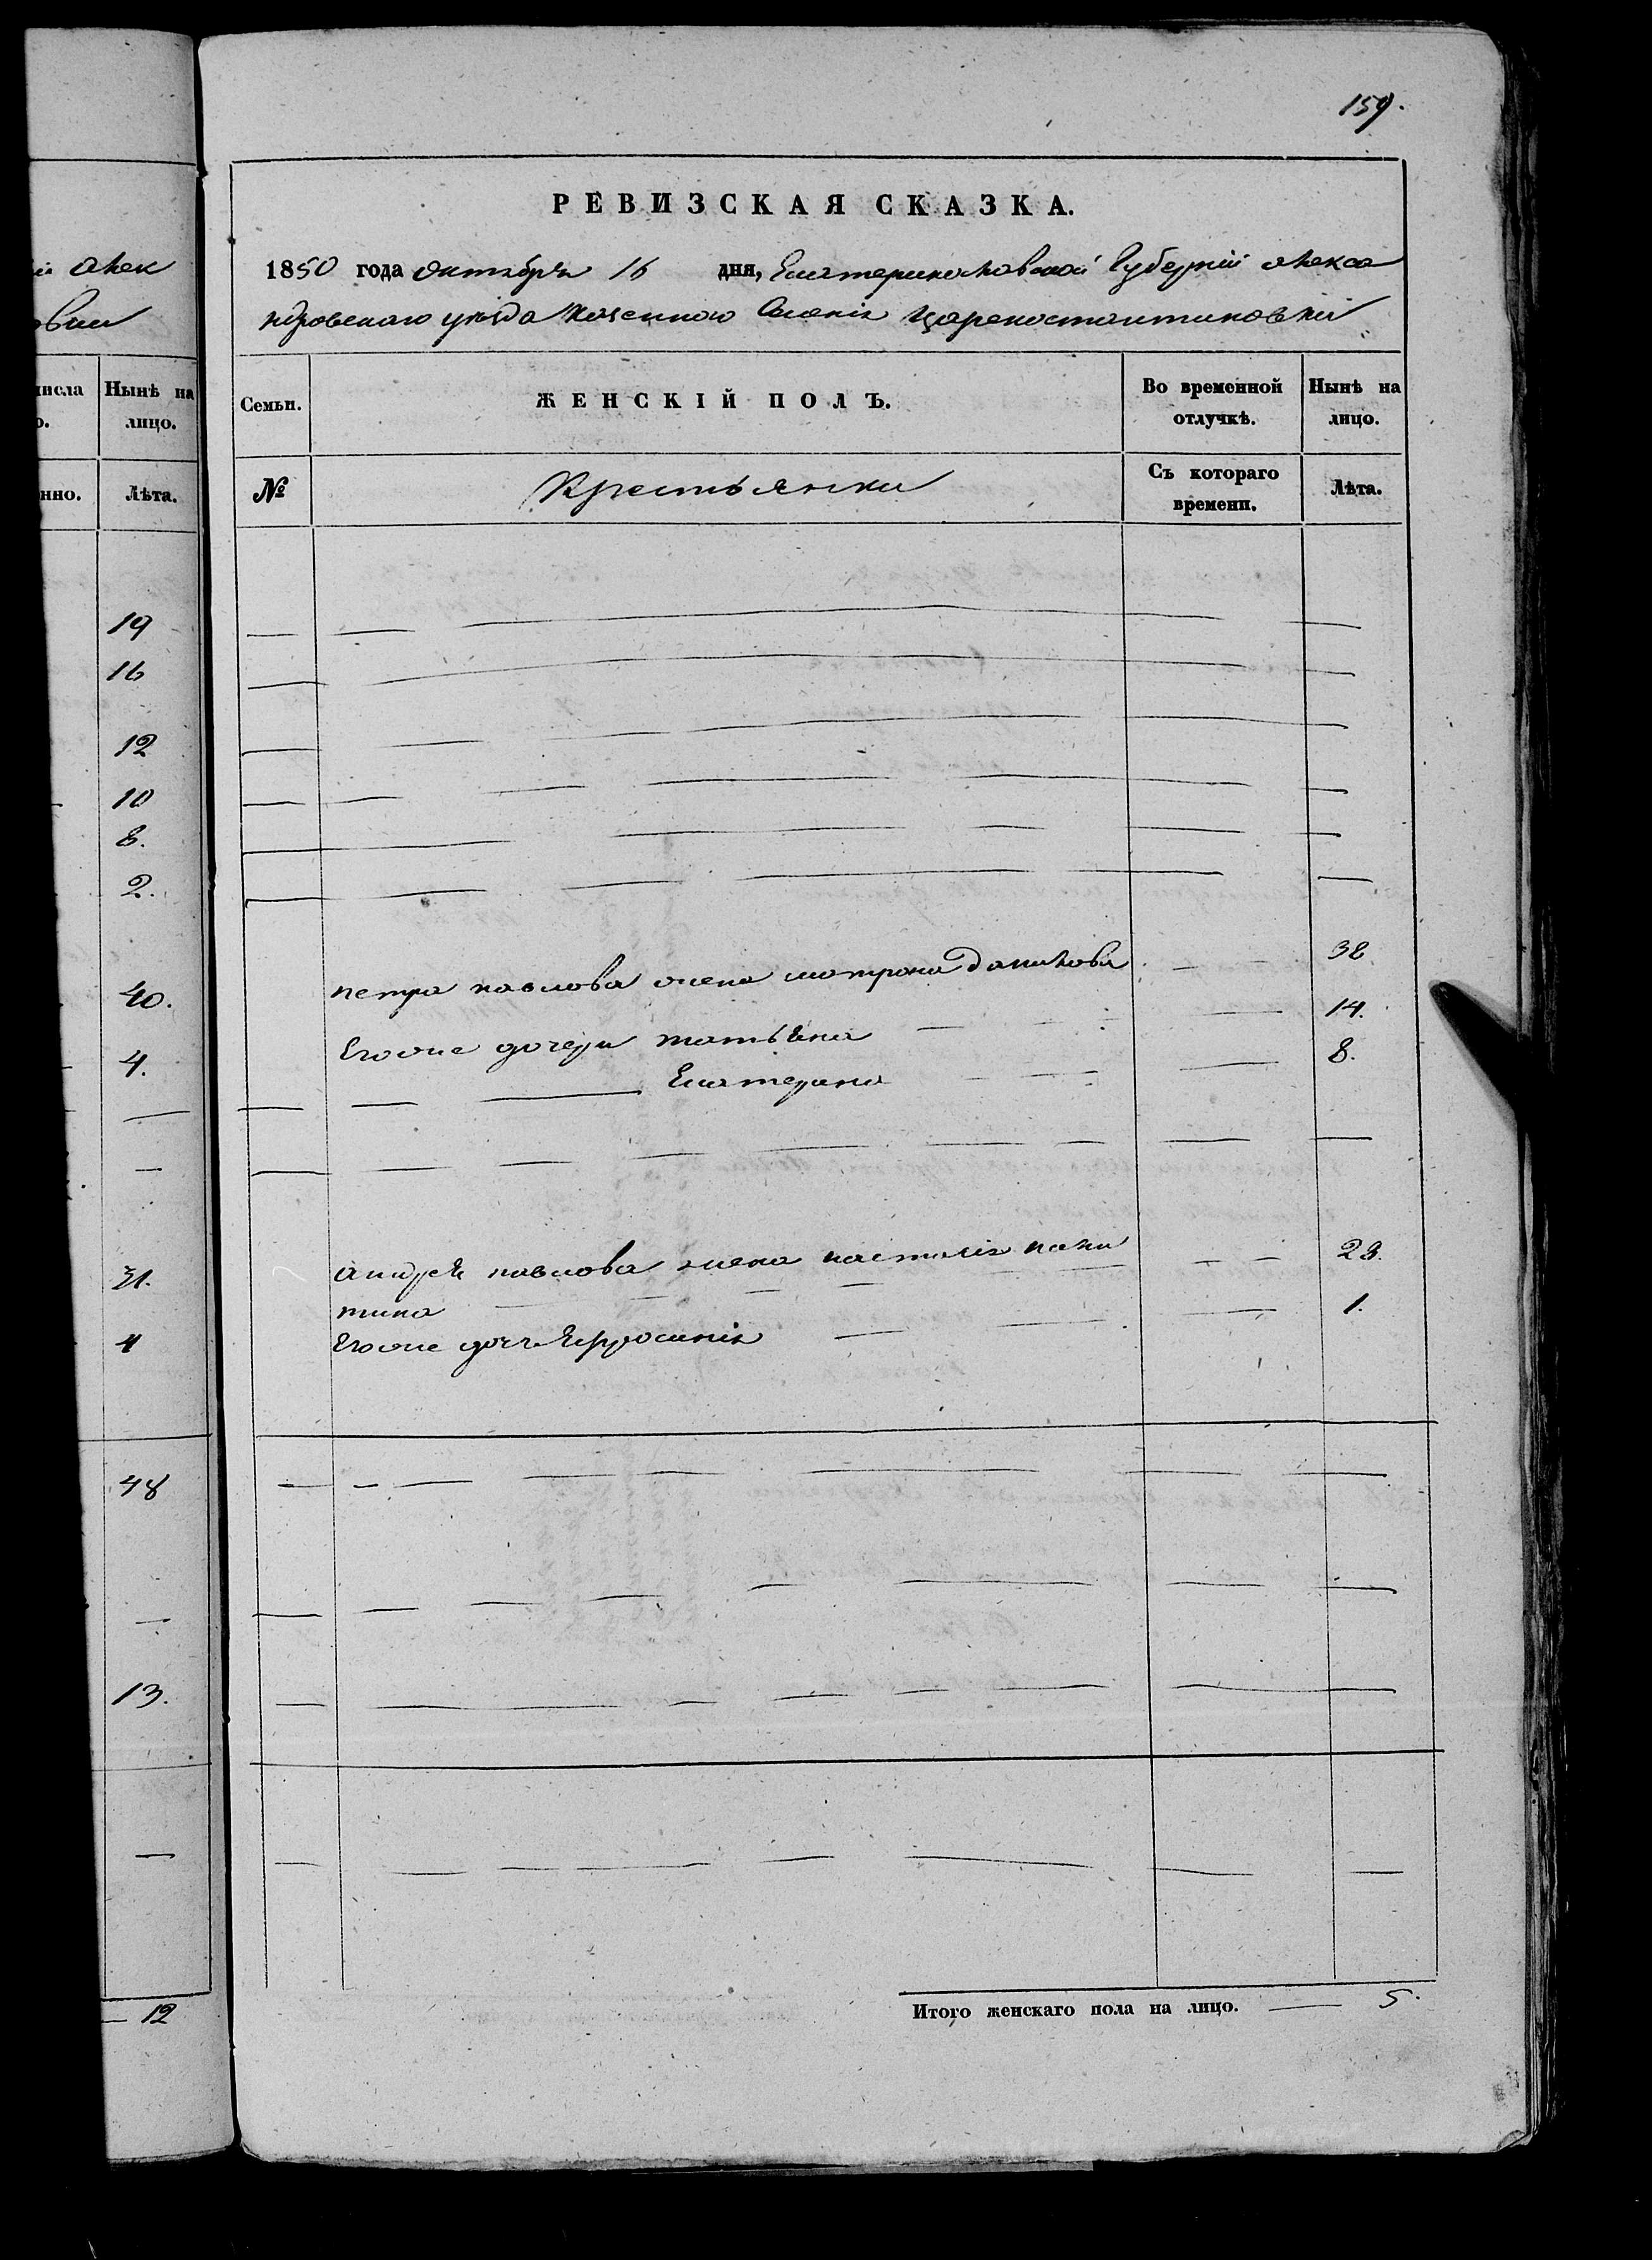 159.
РЕВИЗСКАЯ СКАЗКА.
1850 года октября 16 дня, Екатеринославской Губерній Алекса
ндровскаго уѣзда Казенного Селенія Цареконстантиновкій
Семьи.
ЖЕНСКІЙ ПОЛЪ.
Во временной отлучкѣ.
Нынѣ на лицо.
№
Крестьянки
Съ котораго времени.
Лѣта.
Петра павлова жена матрона Данилова 38
Егоже дочери татьяна 14.
Екатерина 8.
Андрея павлова жена настасія ники 23.
тина
Егоже дочь Ефросинія 1.
Итого женскаго пола на лицо. 5.
Алек
числа
Нынѣ на лицо.
нно.
Лѣта.
19
16
12
10
8.
2.
40.
4.
31.
4
48
13.
12